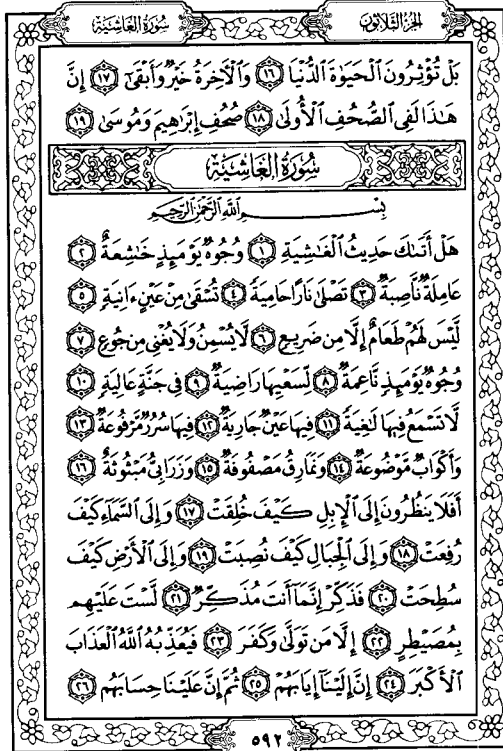 سُورَةُ الغَاشِيَة
الجُزْءُ الثَّلَاثُونَ
بَلْ تُؤْثِرُونَ ٱلْحَيَوٰةَ ٱلدُّنْيَا ١٦ وَٱلْآخِرَةُ خَيْرٌ وَأَبْقَىٰٓ ١٧ إِنَّ
هَٰذَا لَفِى ٱلصُّحُفِ ٱلْأُولَىٰ ١٨ صُحُفِ إِبْرَٰهِيمَ وَمُوسَىٰ ١٩
سُورَةُ الغَاشِيَةِ
بِسْمِ ٱللَّهِ ٱلرَّحْمَٰنِ ٱلرَّحِيمِ
هَلْ أَتَىٰكَ حَدِيثُ ٱلْغَٰشِيَةِ ١ وُجُوهٌ يَوْمَئِذٍ خَٰشِعَةٌ ٢
عَامِلَةٌ نَّاصِبَةٌ ٣ تَصْلَىٰ نَارًا حَامِيَةً ٤ تُسْقَىٰ مِنْ عَيْنٍ ءَانِيَةٍ ٥
لَّيْسَ لَهُمْ طَعَامٌ إِلَّا مِن ضَرِيعٍ ٦ لَّا يُسْمِنُ وَلَا يُغْنِى مِن جُوعٍ ٧
وُجُوهٌ يَوْمَئِذٍ نَّاعِمَةٌ ٨ لِّسَعْيِهَا رَاضِيَةٌ ٩ فِى جَنَّةٍ عَالِيَةٍ ١٠
لَّا تَسْمَعُ فِيهَا لَٰغِيَةً ١١ فِيهَا عَيْنٌ جَارِيَةٌ ١٢ فِيهَا سُرُرٌ مَّرْفُوعَةٌ ١٣
وَأَكْوَابٌ مَّوْضُوعَةٌ ١٤ وَنَمَارِقُ مَصْفُوفَةٌ ١٥ وَزَرَابِىُّ مَبْثُوثَةٌ ١٦
أَفَلَا يَنظُرُونَ إِلَى ٱلْإِبِلِ كَيْفَ خُلِقَتْ ١٧ وَإِلَى ٱلسَّمَآءِ كَيْفَ
رُفِعَتْ ١٨ وَإِلَى ٱلْجِبَالِ كَيْفَ نُصِبَتْ ١٩ وَإِلَى ٱلْأَرْضِ كَيْفَ
سُطِحَتْ ٢٠ فَذَكِّرْ إِنَّمَآ أَنتَ مُذَكِّرٌ ٢١ لَّسْتَ عَلَيْهِم
بِمُصَيْطِرٍ ٢٢ إِلَّا مَن تَوَلَّىٰ وَكَفَرَ ٢٣ فَيُعَذِّبُهُ ٱللَّهُ ٱلْعَذَابَ
ٱلْأَكْبَرَ ٢٤ إِنَّ إِلَيْنَآ إِيَابَهُمْ ٢٥ ثُمَّ إِنَّ عَلَيْنَا حِسَابَهُم ٢٦
٥٩٢